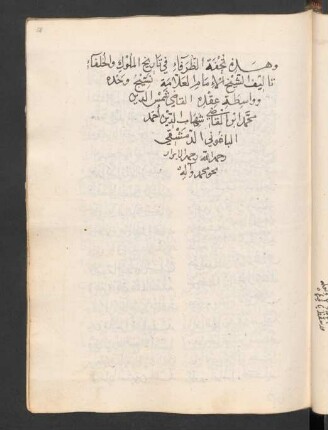 وهذه تحفة الظرفاء في تاريخ الملوك والخلفاء
تاليف الشيخ الامام العلامة نسيج وحده
وواسطة عقده القاضي شمس الدين
محمد ابن القاضي شهاب الدين احمد
الباعوني الدمشقي
رحمه الله رحمة الابرار
بمحمد وآله